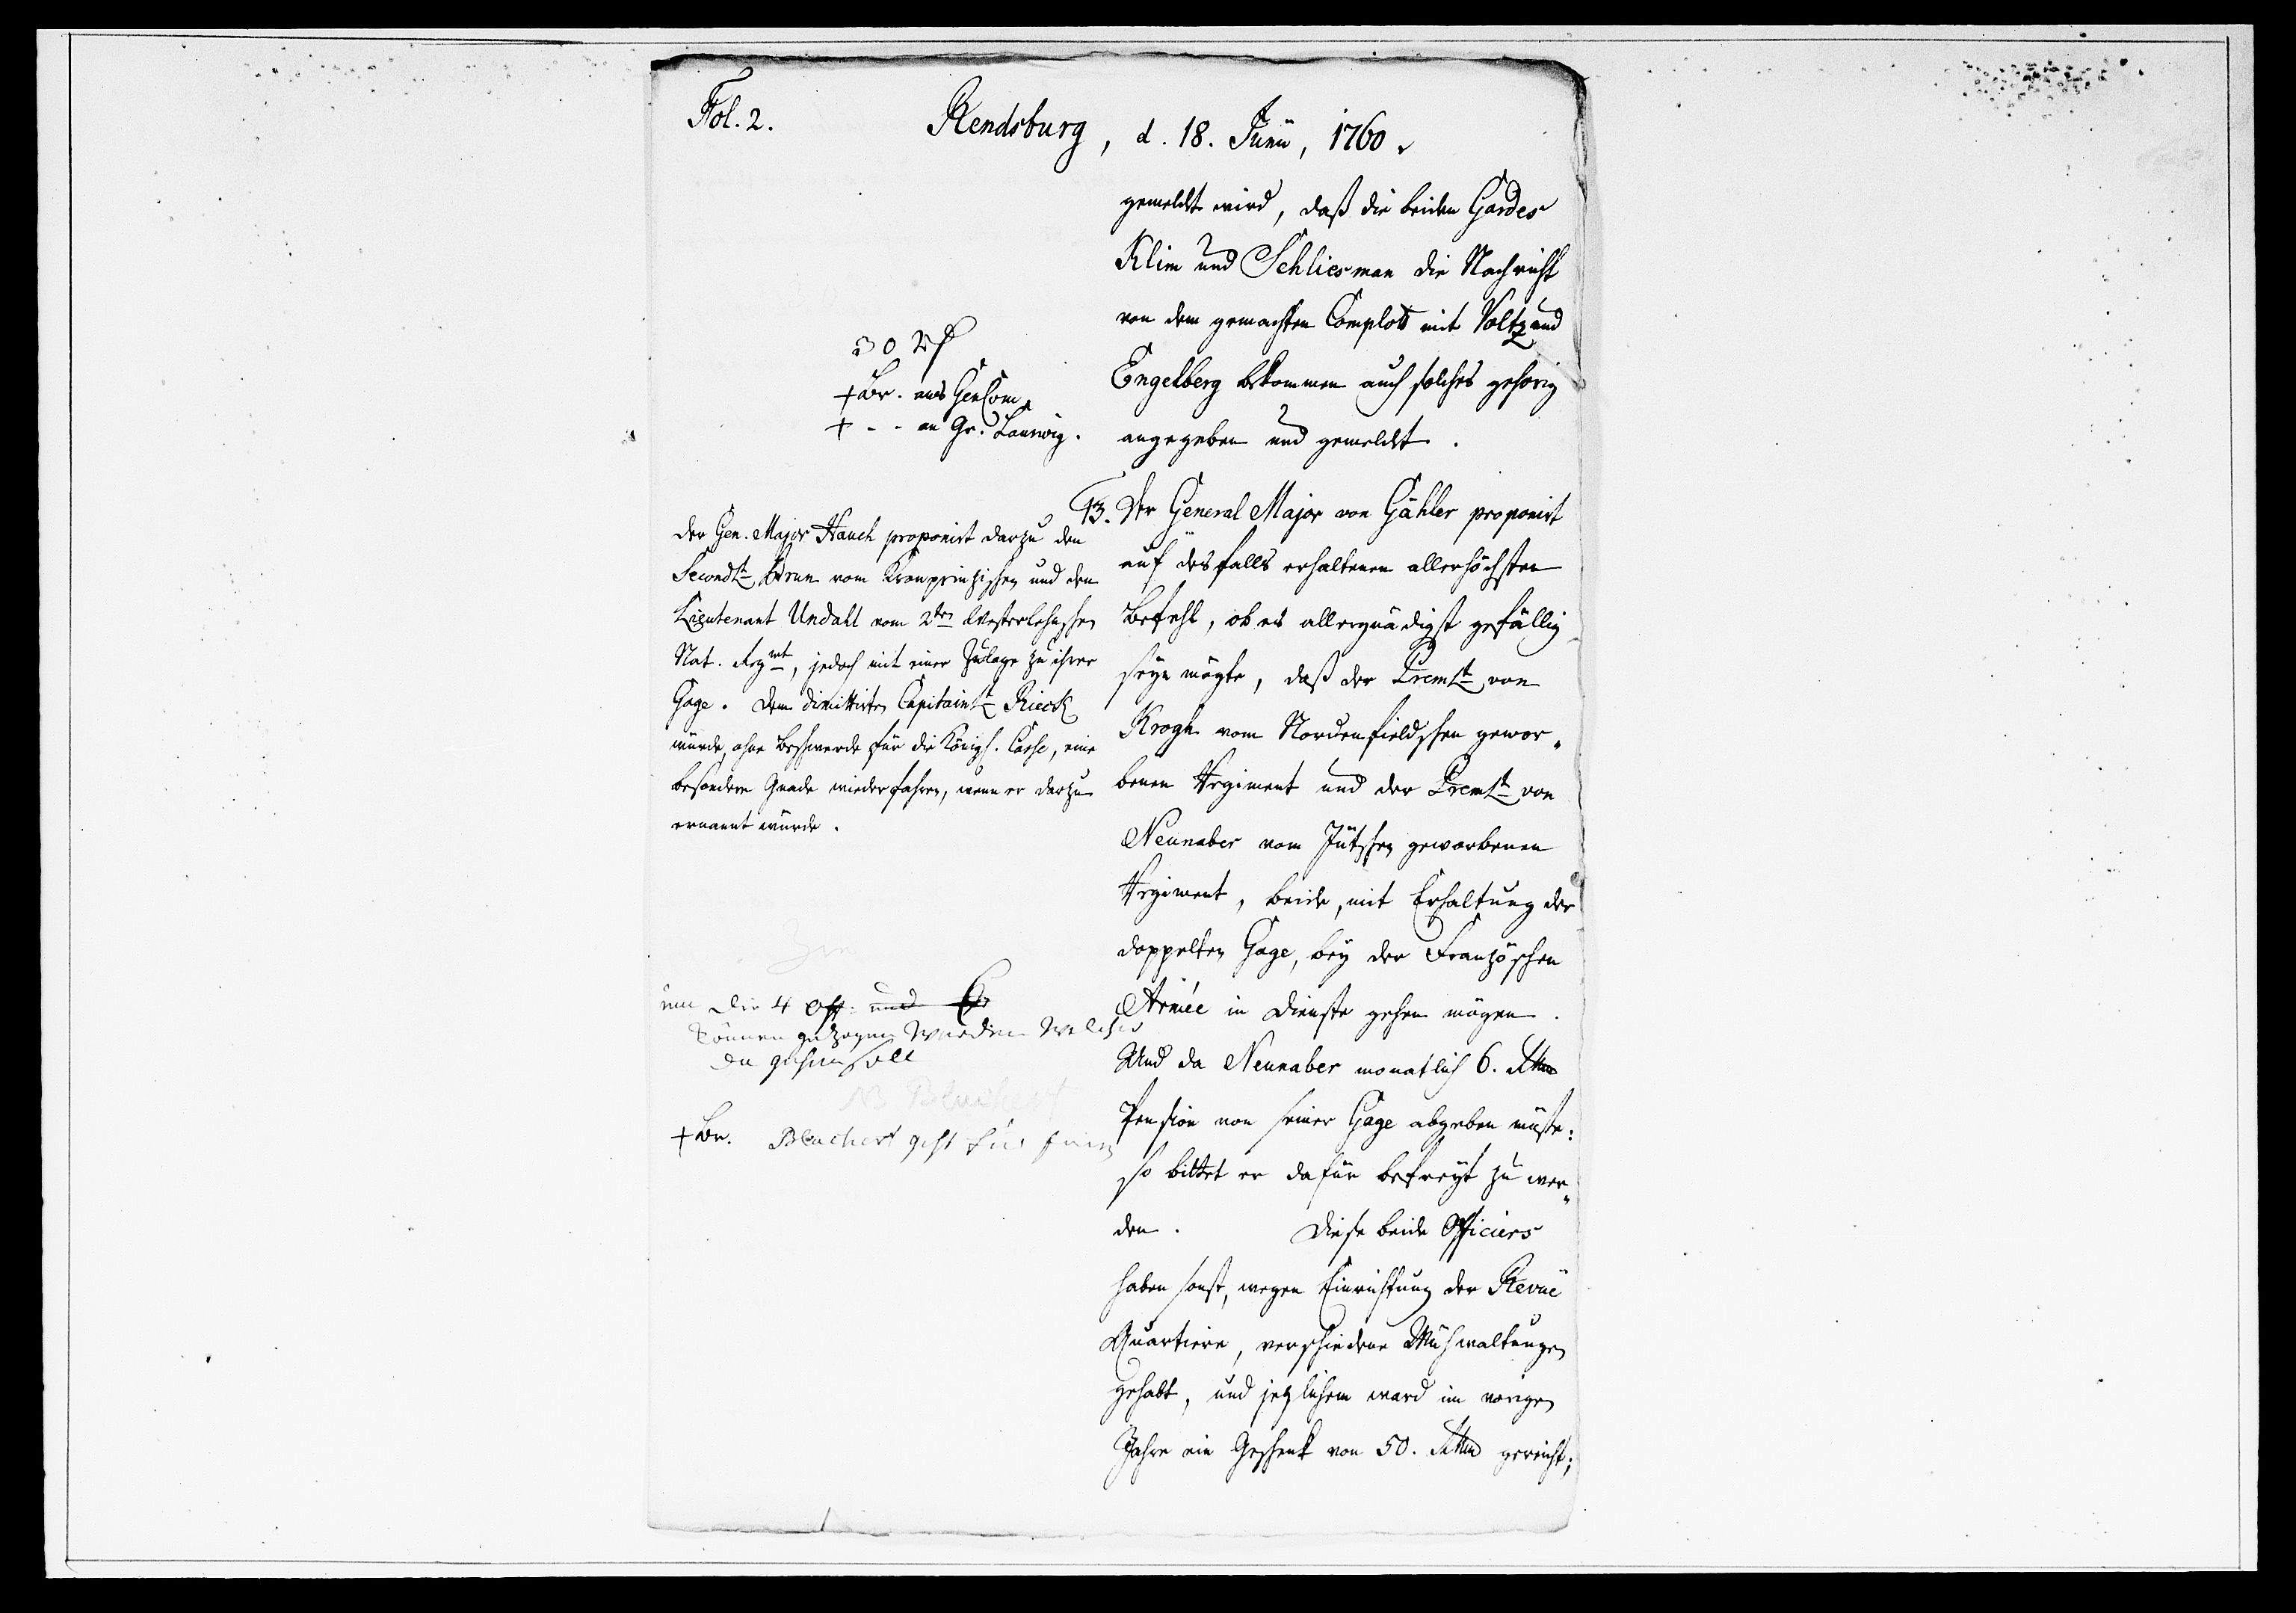 Fol. 2.
Rendsburg, d. 18. Junii, 1760.
gemeldet wird, daß die beiden Gardes
Klim und Schliesman die Nachricht
von dem gemachten Complott mit Voltz und
Engelberg bekommen auch solches gehörig
angegeben und gemeldet.
30
+ Br. ans GenCom.
+ - - an Gr. Laurwig.
13. Der General Major von Gähler proponirt
auf desfalls erhaltenen allerhöchsten
Befehl, ob es allergnädigst gefällig
seyn mögte, daß der PremLt. von
Krogh vom Nordenfieldschen gewor„
benen Regiment und der PremLt. von
Neunaber vom Jütschen geworbenen
Regiment, beide, mit Erhaltung der
doppelten Gage, bey der Französchen
Armée in Dienste gehen mögen.
Und da Neunaber monatlich 6. Rthlr
Pension von seiner Gage abgeben müste:
so bittet er dafür befreyt zu wer„
den. Diese beide Officiers
haben sonst, wegen Einrichtung der Revüe
Quartiere, verschiedene Mühwaltungen
gehabt, und jetzlichem ward im vorigen
Jahre ein Geschenk von 50. Rthlr gereicht;
der Gen. Major Hauch proponirt darzu den
SecondLt. Brun vom Kronprinzischen und den
Lieutenant Undahl vom 2ten Westerlehnschen
Nat. Regmt, jedoch mit einer Zulage zu ihrer
Gage. Dem dimittirten CapitainLt. Rieck
würde, ohne Beschwerde für die Königl. Casse, eine
besondere Gnade wiederfahren, wenn er darzu
ernannt würde.
um die 4 Off: und
können gezogen werden welcher
da gehen soll
NB Bluchert
+ Br. Bluchert geht für